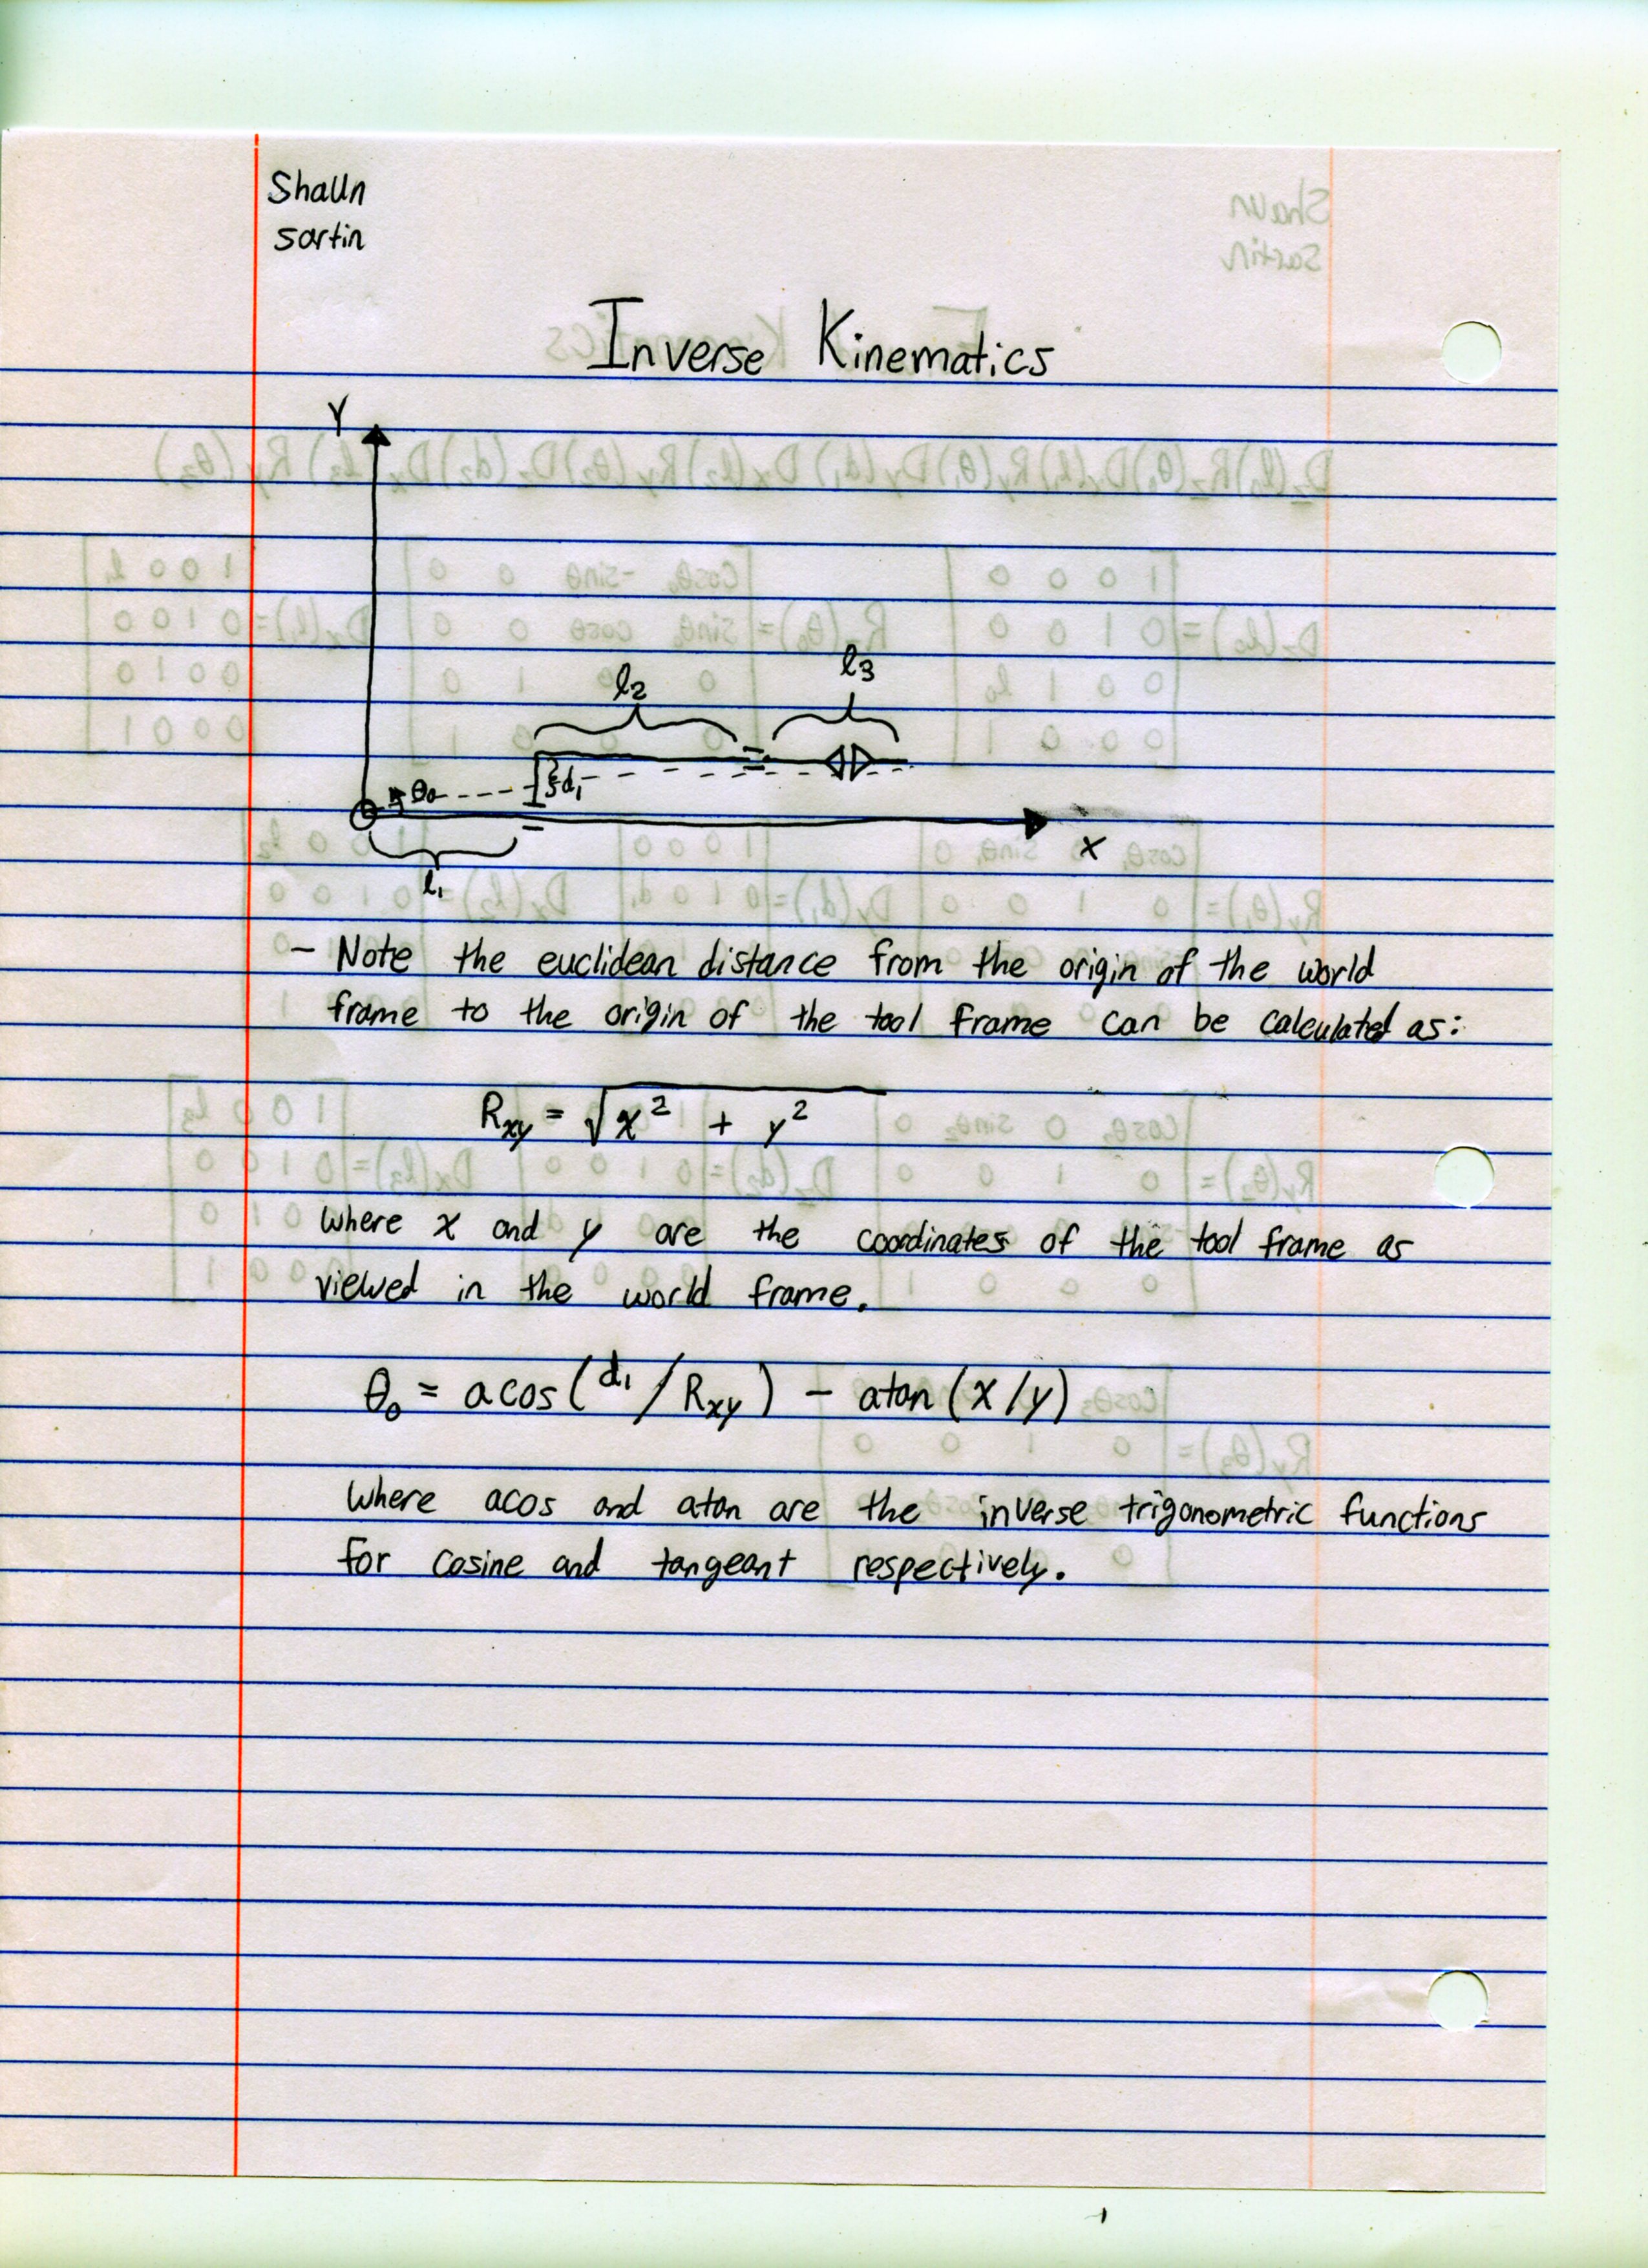 Shaun
Sartin
Inverse Kinematics
Y
l3
l2
d1
θ0
X
l1
- Note the euclidean distance from the origin of the world
frame to the origin of the tool frame can be calculated as:
Rxy = √x² + y²
where x and y are the coordinates of the tool frame as
viewed in the world frame.
θ0 = acos(d1/Rxy) - atan(x/y)
where acos and atan are the inverse trigonometric functions
for cosine and tangeant respectively.